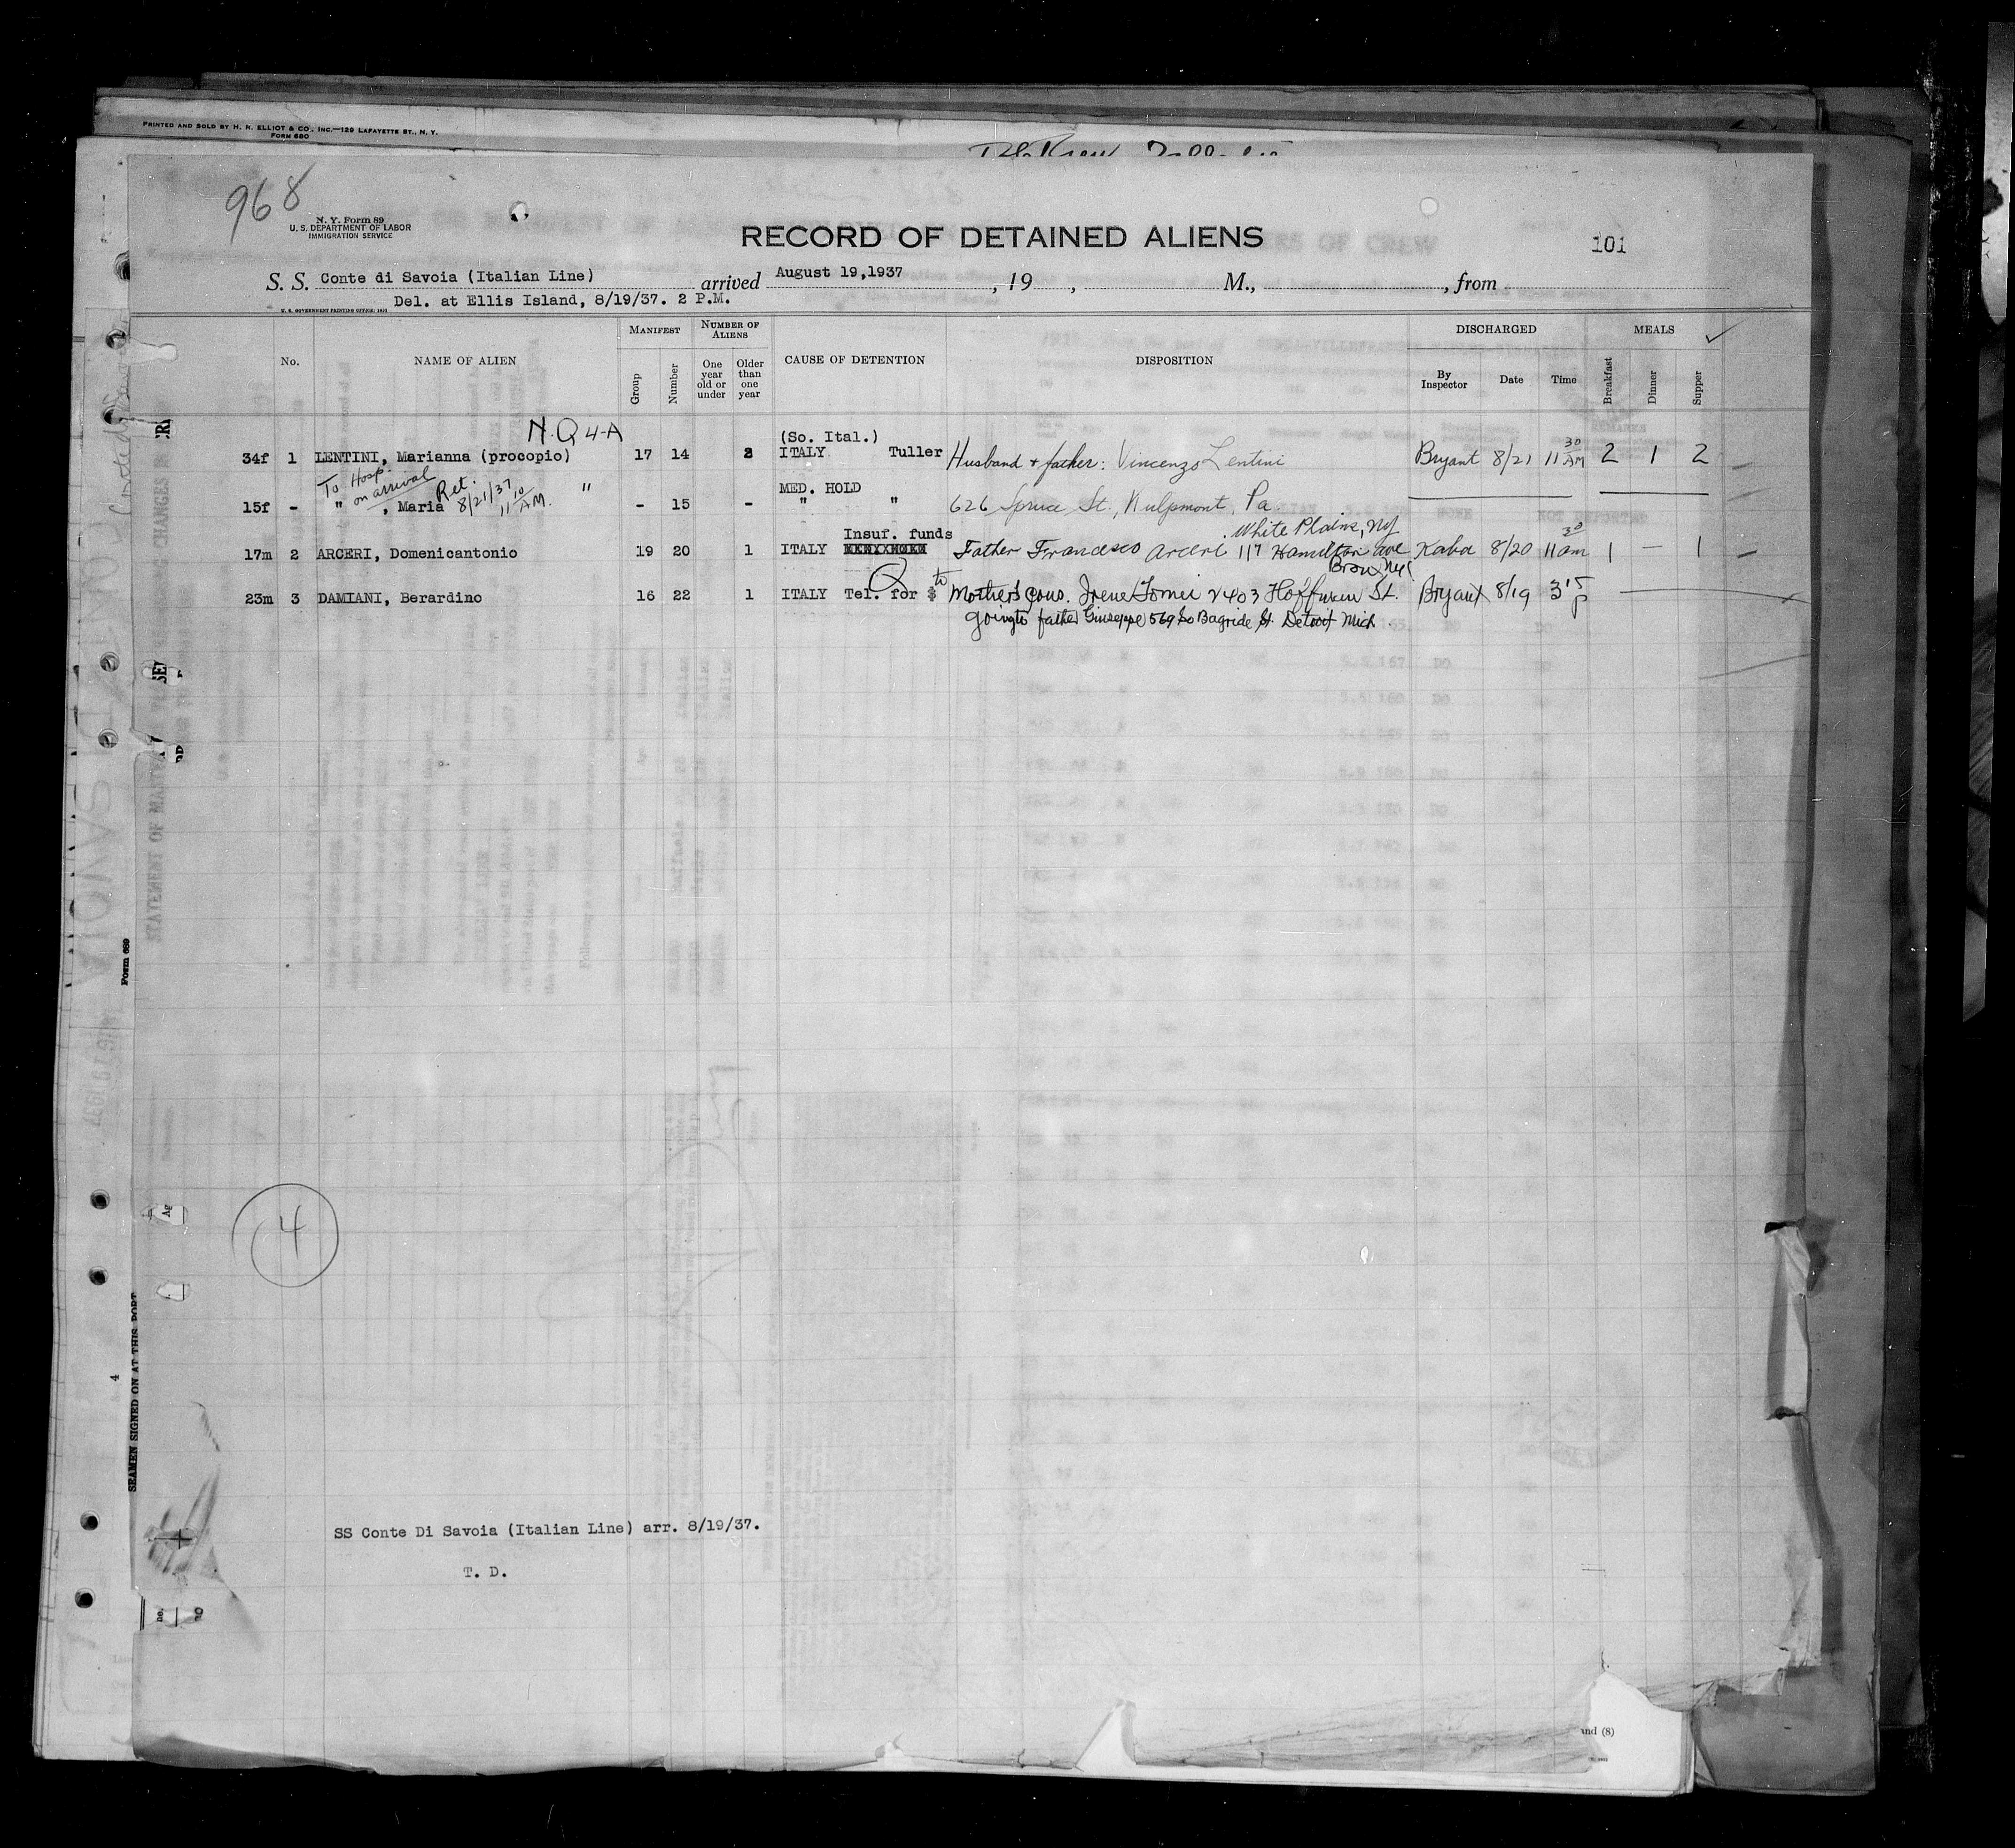 PRINTED AND SOLD BY H. K. ELLIOT & CO., INC.—129 LAFAYETTE ST., N. Y.
FORM 680
968
N. Y. Form 89
U. S. DEPARTMENT OF LABOR
IMMIGRATION SERVICE
RECORD OF DETAINED ALIENS
101
S. S. Conte di Savoia (Italian Line) arrived August 19,1937, 19 , M., , from
Del. at Ellis Island, 8/19/37. 2 P.M.
U. S. GOVERNMENT PRINTING OFFICE: 1931
No. NAME OF ALIEN MANIFEST Group Number NUMBER OF ALIENS One year old or under Older than one year CAUSE OF DETENTION DISPOSITION DISCHARGED By Inspector Date Time MEALS Breakfast Dinner Supper
N.Q 4-A
(So. Ital.)
34f 1 LENTINI, Marianna (procopio) 17 14 2 ITALY Tuller Husband + father: Vincenzo Lentini Bryant 8/21 11 30 AM 2 1 2
To Hosp. on arrival Ret. 8/21/37 11 10 AM.
MED. HOLD
15f - " , Maria " - 15 - " " 626 Spruce St., Pa
Insuf. funds White Plains, NY
17m 2 ARCERI, Domenicantonio 19 20 1 ITALY Father Francesco Arceri 117 Hamilton ave Kaba 8/20 11 30 am 1 — 1 —
Q to Bronx NYC
23m 3 DAMIANI, Berardino 16 22 1 ITALY Tel. for $ Mother's cous. Irene 2403 Hoffman St. Bryant 8/19 3 15 P
going to father Giuseppe 569 So St. Detroit Mich.
4
SS Conte Di Savoia (Italian Line) arr. 8/19/37.
T. D.
Form 689
STATEMENT OF
4
SEAMEN SIGNED ON AT THIS PORT
Ag
no.
and (8)